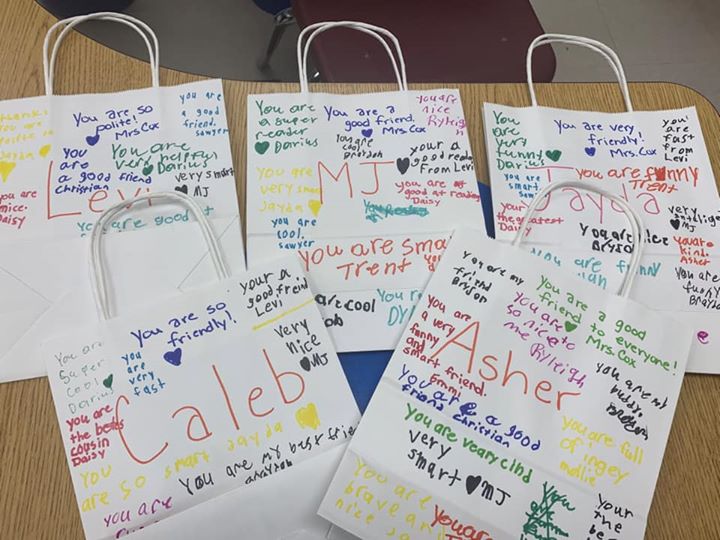 You are so
polite!
Mrs. Cox
you are
a good
friend.
sawyer
thanks
you are
Jayda
You
are
a good
friend
Christian
You are
very helpful
Darius
very smart
MJ
you are
nice.
Daisy
Levi
you are good at
You are
a super
reader
Darius
You are a
good friend.
Mrs. Cox
you are
nice
Ryleigh
you are
cool
Brayden
your a
good reader
From Levi
MJ
you are
very smart
Jayda
you are
good at reading
Daisy
you are
cool.
sawyer
you are smart
Trent
are cool
You are
very funny
Darius
You are very
friendly!
Mrs. Cox
you're
fast
from
Levi
you are funny
Trent
Jayda
you are
smart.
sawyer
your the
greatest
Daisy
you are nice
Bryson
very
MJ
you are
kind.
Asher
You are funny
You are
Brayden
You are so
friendly!
your a
good friend
Levi
You are
super
cool
Darius
you
are
very
fast
very
nice
MJ
you are
the best
cousin
Daisy
Caleb
You
are so smart Jayda
you are my best friend
you are
you are my
friend
Bryson
you are a good
friend
to everyone!
Mrs. Cox
you are
so nice to
me Ryleigh
you are
a very
funny
and
smart
friend.
Emmi
Asher
you are my
buddy.
you are a good
friend Christian
you are full
of ingey
mollie
You are veary cind
very
smart MJ
you are
brave and
nice
You are
your
the
best